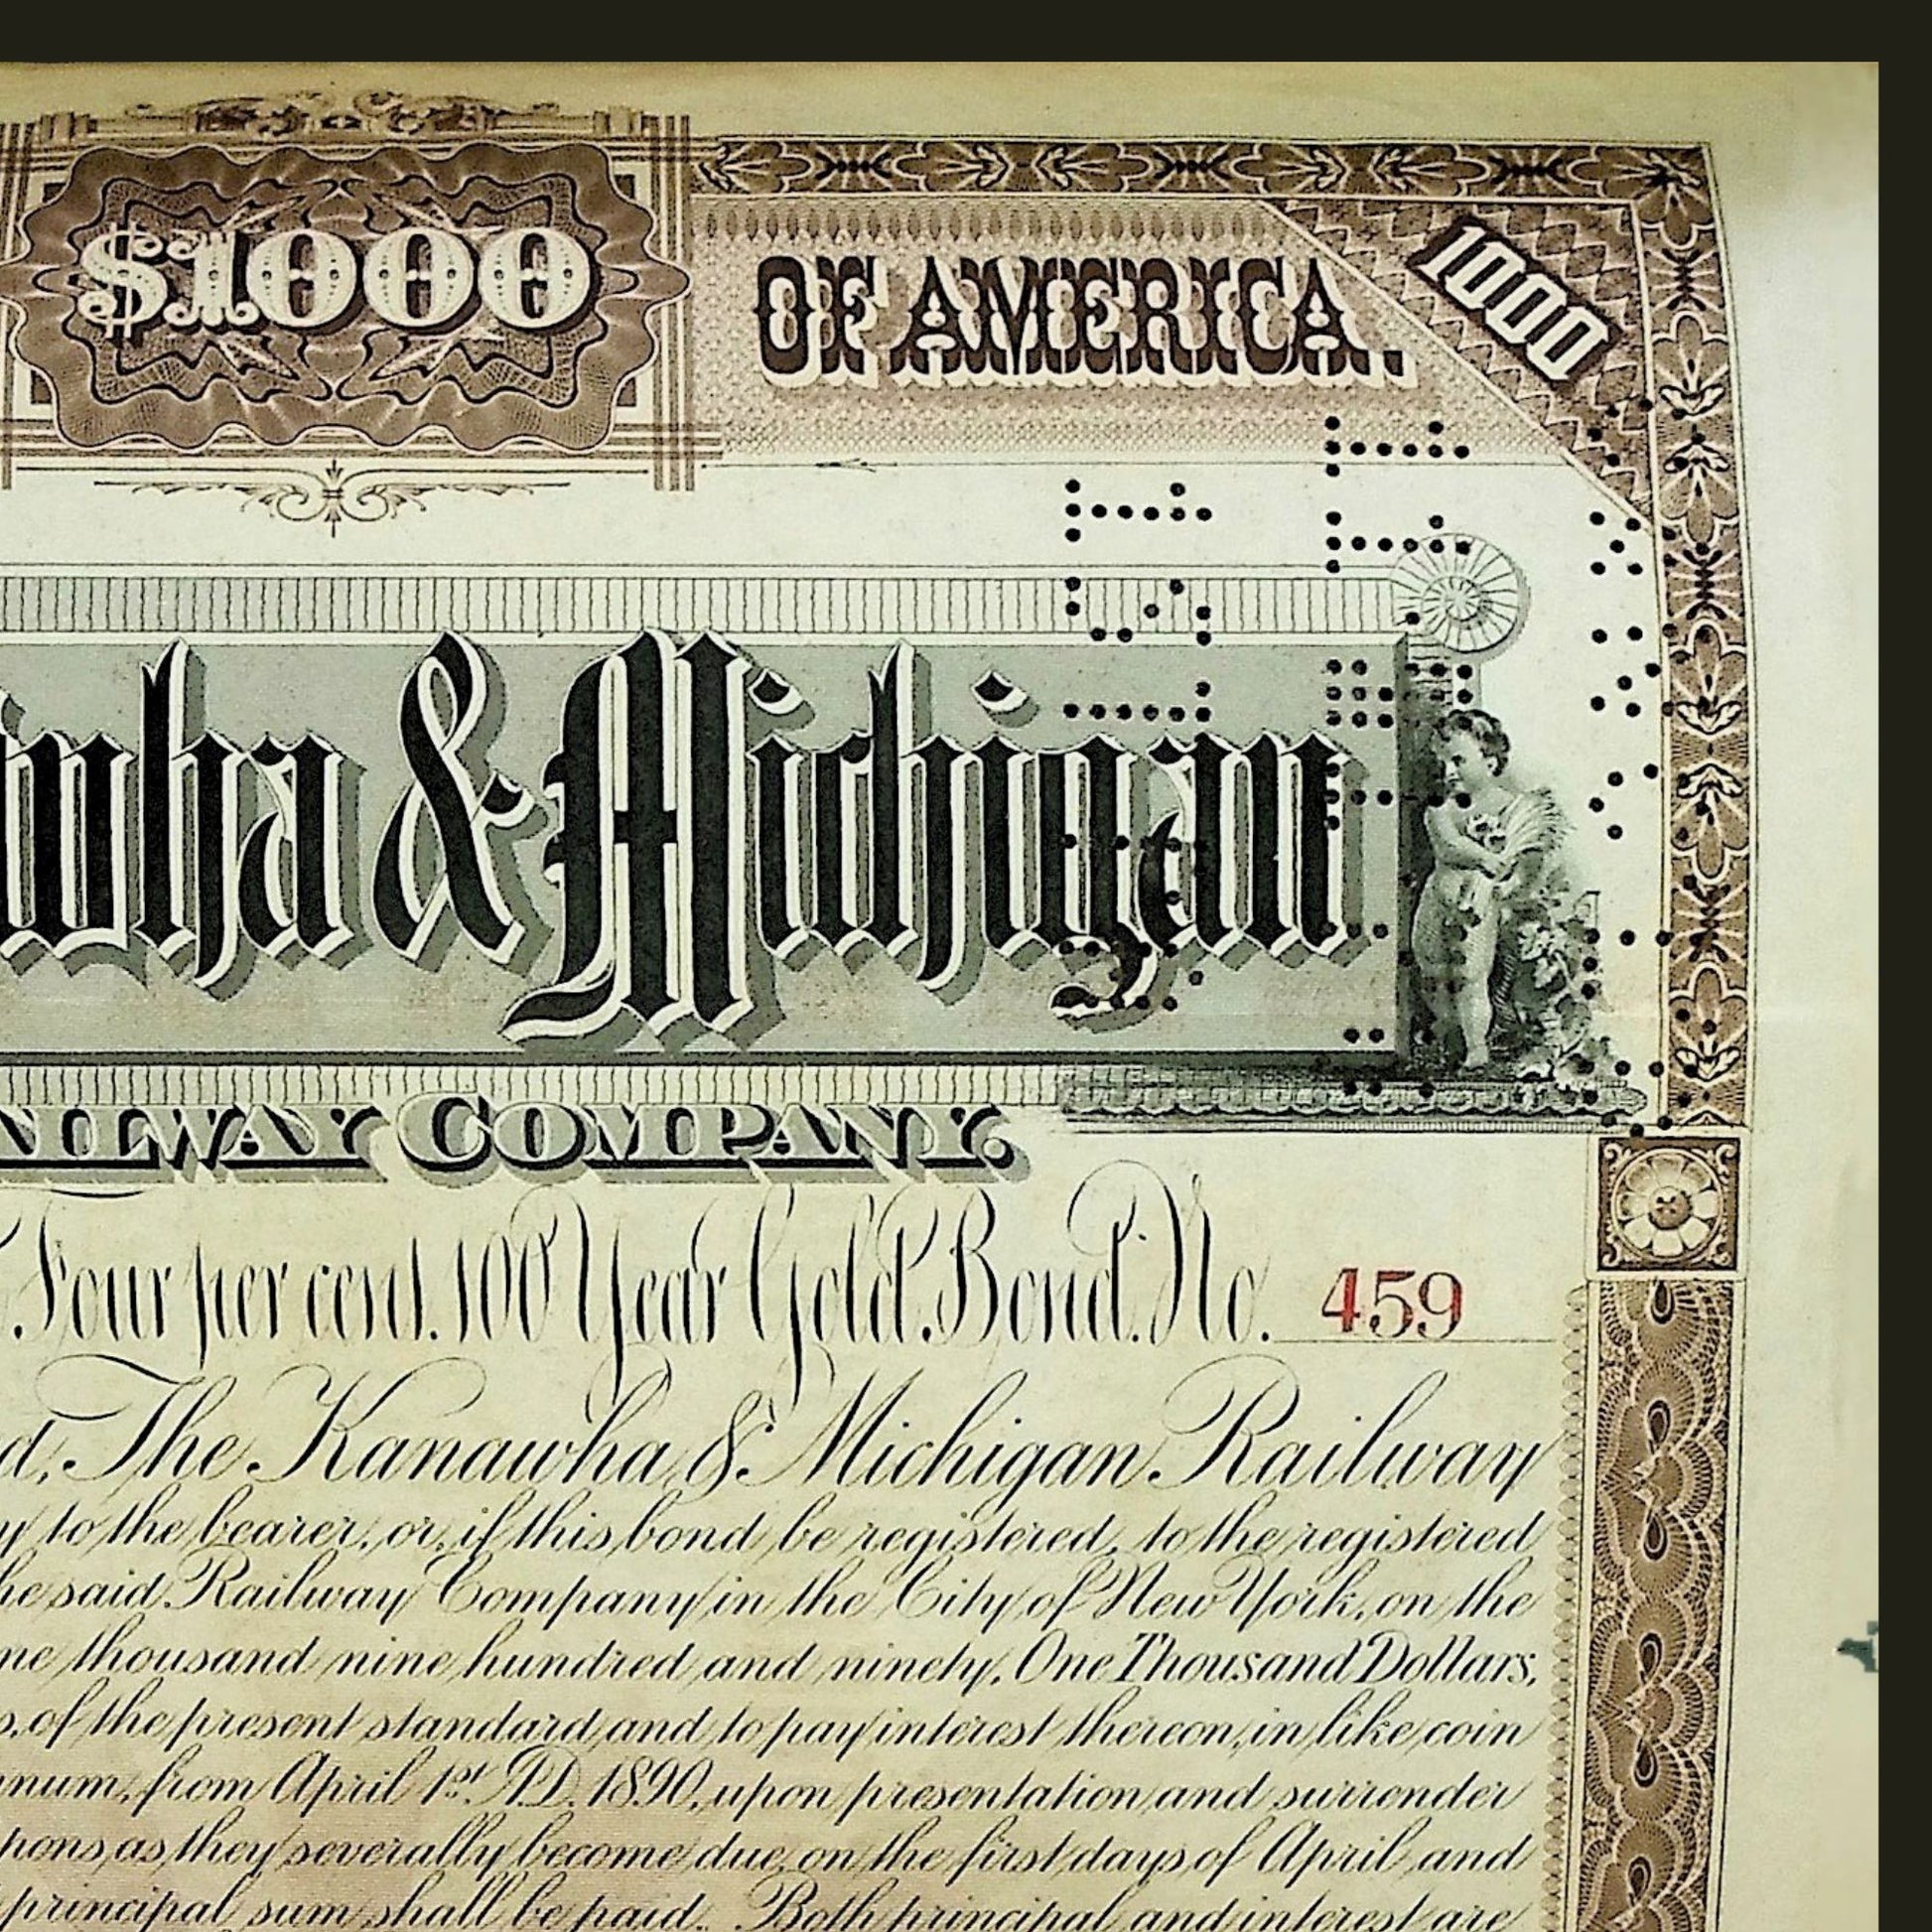 $1000 OF AMERICA. 1000
& Michigan
COMPANY.
Four per cent. 100 Year Gold Bond. No. 459
The Kanawha & Michigan Railway
to the bearer, or, if this bond be registered, to the registered
said Railway Company in the City of New York, on the
thousand nine hundred and ninety, One Thousand Dollars,
of the present standard and to pay interest thereon, in like coin
from April 1st A.D. 1890, upon presentation and surrender
as they severally become due, on the first days of April and
principal sum shall be paid. Both principal and interest are